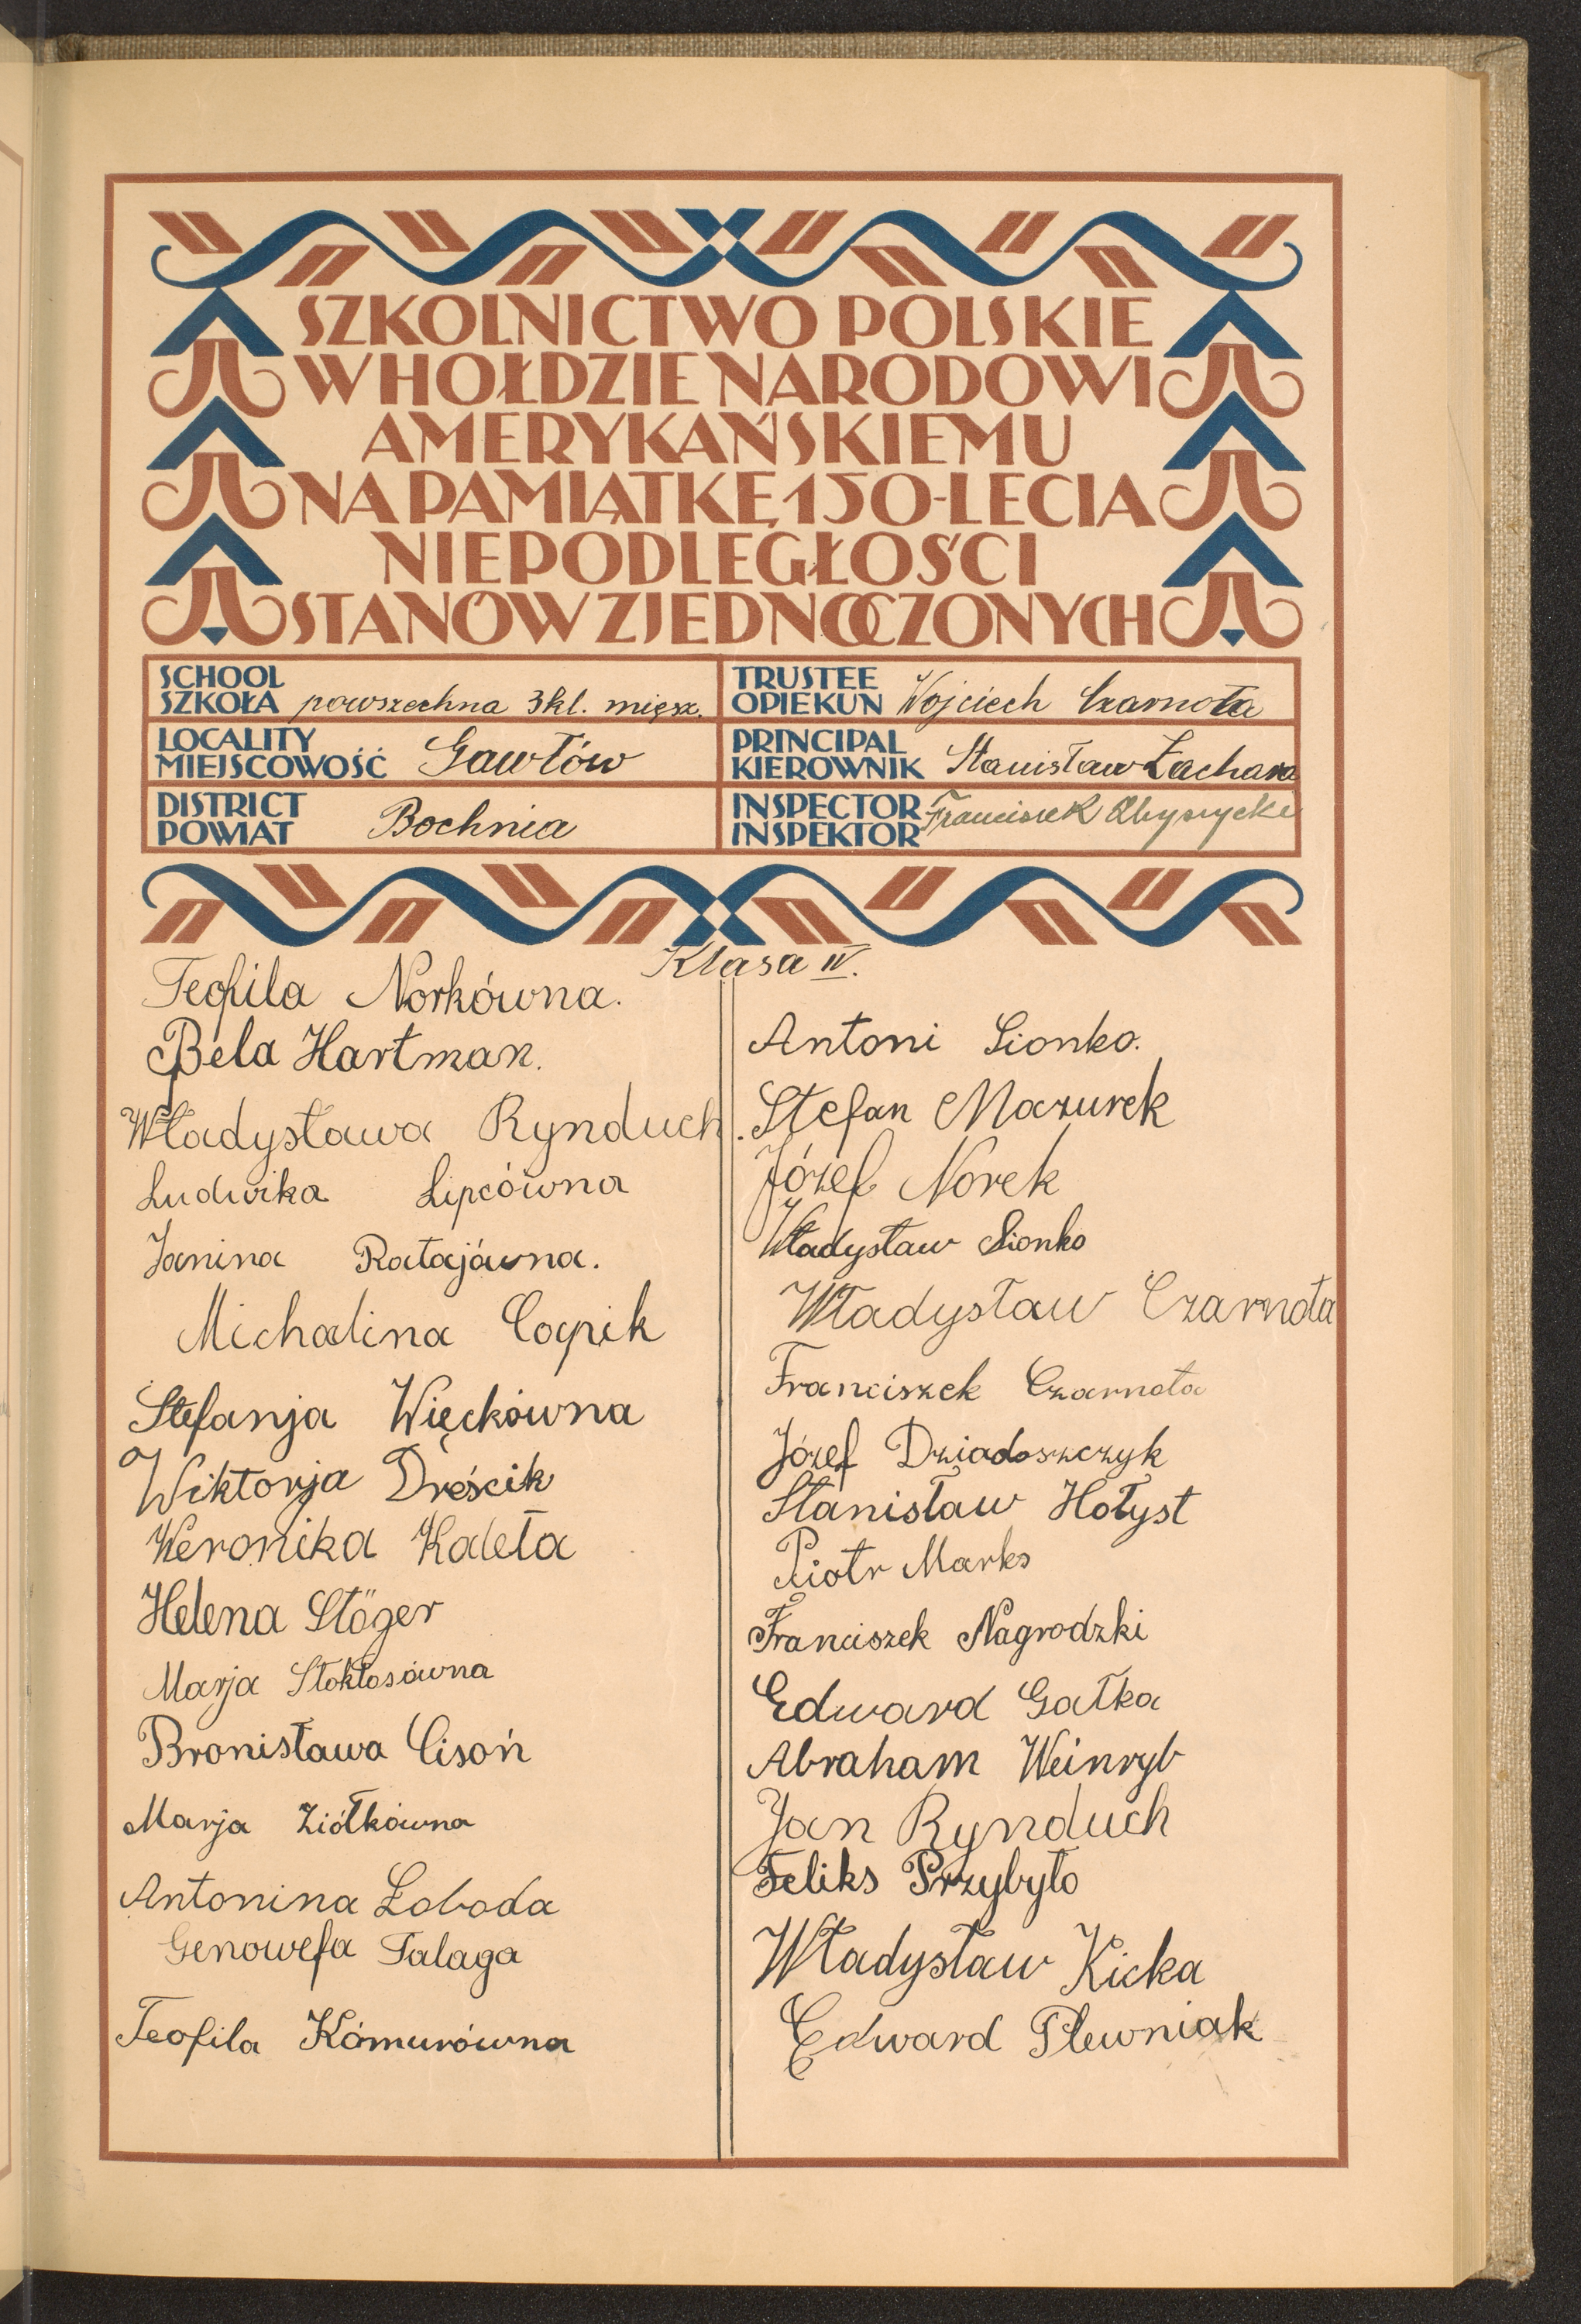 SZKOLNICTWO POLSKIE
W HOŁDZIE NARODOWI
AMERYKAŃSKIEMU
NA PAMIĄTKĘ 150-LECIA
NIEPODLEGŁOŚCI
STANÓW ZJEDNOCZONYCH
SCHOOL
SZKOŁA powszechna 3kl. mięsz.
TRUSTEE
OPIEKUN Wojciech Czarnota
LOCALITY
MIEJSCOWOŚĆ Gawłów
PRINCIPAL
KIEROWNIK Stanisław Zachara
DISTRICT
POWIAT Bochnia
INSPECTOR
INSPEKTOR Franciszek
Klasa IV.
Teofila Norkówna.
Bela Hartman.
Władysława Rynduch.
Ludwika Lipcówna
Janina Ratajówna.
Michalina Copik
Stefanja Więckówna
Wiktorja Dreścik
Weronika Kaleta
Helena Stöger
Marja Stokłosówna
Bronisława Cisoń
Marja Ziółkówna
Antonina Łoboda
Genowefa Talaga
Teofila Kómurówna
Antoni Sionko.
Stefan Mazurek
Józef Norek
Władysław Sionko
Władysław Czarnota
Franciszek Czarnota
Józef Dziadoszczyk
Stanisław Hołyst
Piotr Marks
Franciszek Nagrodzki
Edward Gałka
Abraham Weinryb
Jan Rynduch
Feliks Przybyło
Władysław Kicka
Edward Plewniak